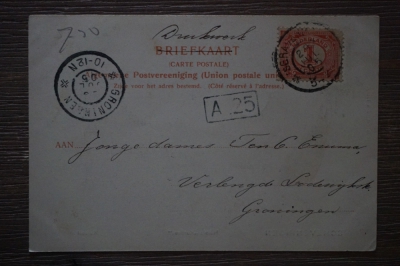 7.50
Drukwerk
BRIEFKAART
(CARTE POSTALE)
Algemeene Postvereeniging (Union postale un
Zijde voor het adres bestemd. (Côté réservé à l'adresse.)
GRONINGEN
10-12N
A 25
AAN
Jonge dames Ten C. Emma
Verlengde Lodewijkstr.
Groningen